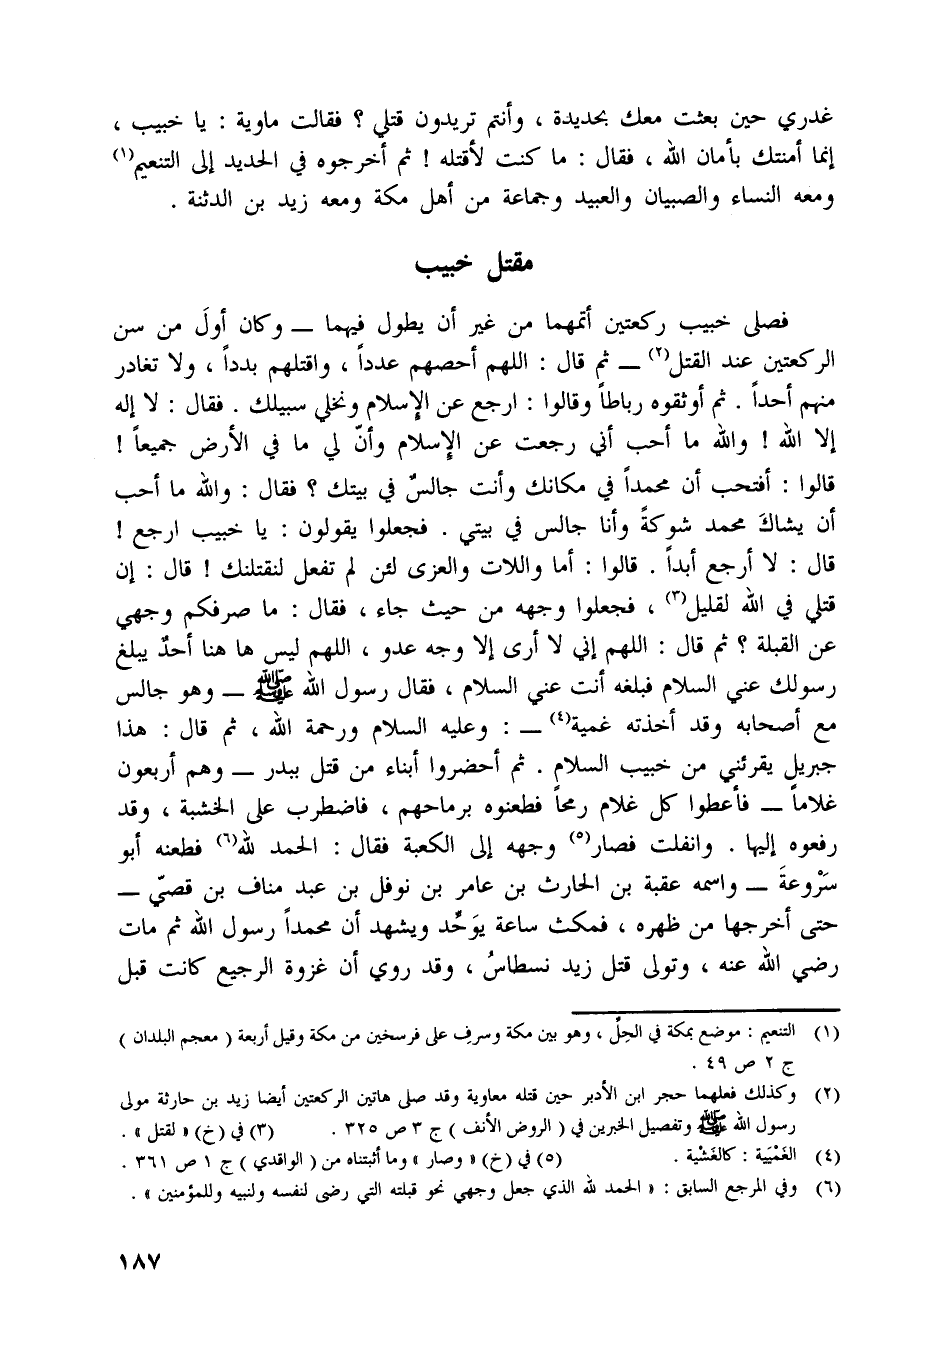 غدري حين بعثت معك بحديدة ، وأنتم تريدون قتلي ؟ فقالت ماوية : يا خبيب ،
إنما أمنتك بأمان الله ، فقال : ما كنت لأقتله ! ثم أخرجوه في الحديد إلى التنعيم(١)
ومعه النساء والصبيان والعبيد وجماعة من أهل مكة ومعه زيد بن الدثنة .
مقتل خبيب
فصلى خبيب ركعتين أتمهما من غير أن يطول فيهما ــ وكان أولَ من سن
الركعتين عند القتل(٢) ــ ثم قال : اللهم أحصهم عدداً ، واقتلهم بدداً ، ولا تغادر
منهم أحداً . ثم أوثقوه رباطاً وقالوا : ارجع عن الإسلام ونخلي سبيلك . فقال : لا إله
إلا الله ! والله ما أحب أني رجعت عن الإسلام وأنّ لي ما في الأرض جميعاً !
قالوا : أفتحب أن محمداً في مكانك وأنت جالسٌ في بيتك ؟ فقال : والله ما أحب
أن يشاكَ محمد شوكةً وأنا جالس في بيتي . فجعلوا يقولون : يا خبيب ارجع !
قال : لا أرجع أبداً . قالوا : أما واللات والعزى لئن لم تفعل لنقتلنك ! قال : إن
قتلي في الله لقليل(٣) ، فجعلوا وجهه من حيث جاء ، فقال : ما صرفكم وجهي
عن القبلة ؟ ثم قال : اللهم إني لا أرى إلا وجه عدو ، اللهم ليس ها هنا أحدٌ يبلغ
رسولك عني السلام فبلغه أنت عني السلام ، فقال رسول الله ﷺ ــ وهو جالس
مع أصحابه وقد أخذته غمية(٤) ــ : وعليه السلام ورحمة الله ، ثم قال : هذا
جبريل يقرئني من خبيب السلام . ثم أحضروا أبناء من قتل ببدر ــ وهم أربعون
غلاماً ــ فأعطوا كل غلام رمحاً فطعنوه برماحهم ، فاضطرب على الخشبة ، وقد
رفعوه إليها . وانفلت فصار(٥) وجهه إلى الكعبة فقال : الحمد لله(٦) فطعنه أبو
سَرْوعةَ ــ واسمه عقبة بن الحارث بن عامر بن نوفل بن عبد مناف بن قصيّ ــ
حتى أخرجها من ظهره ، فمكث ساعة يوَحِّد ويشهد أن محمداً رسول الله ثم مات
رضي الله عنه ، وتولى قتل زيد نسطاسُ ، وقد روي أن غزوة الرجيع كانت قبل
(١) التنعيم : موضع بمكة في الحِلِّ ، وهو بين مكة وسرِف على فرسخين من مكة وقيل أربعة ( معجم البلدان )
ج ٢ ص ٤٩ .
(٢) وكذلك فعلهما حجر ابن الأدبر حين قتله معاوية وقد صلى هاتين الركعتين أيضا زيد بن حارثة مولى
رسول الله ﷺ وتفصيل الخبرين في ( الروض الأنف ) ج ٣ ص ٣٢٥ . (٣) في (خ) « لقتل » .
(٤) الغَمْيَة : كالغَشْية . (٥) في (خ) « وصار » وما أثبتناه من ( الواقدي ) ج ١ ص ٣٦١ .
(٦) وفي المرجع السابق : « الحمد لله الذي جعل وجهي نحو قبلته التي رضى لنفسه ولنبيه وللمؤمنين » .
١٨٧